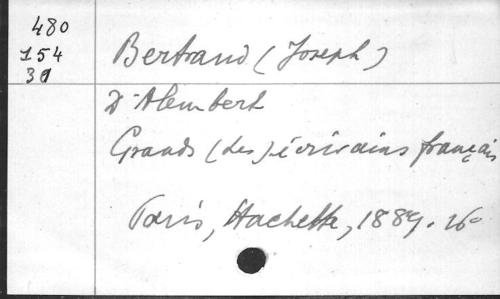 480
154
31
Bertrand (Joseph)
D'Alembert
Grands (les) écrivains français
Paris, Hachette, 1889. 16º